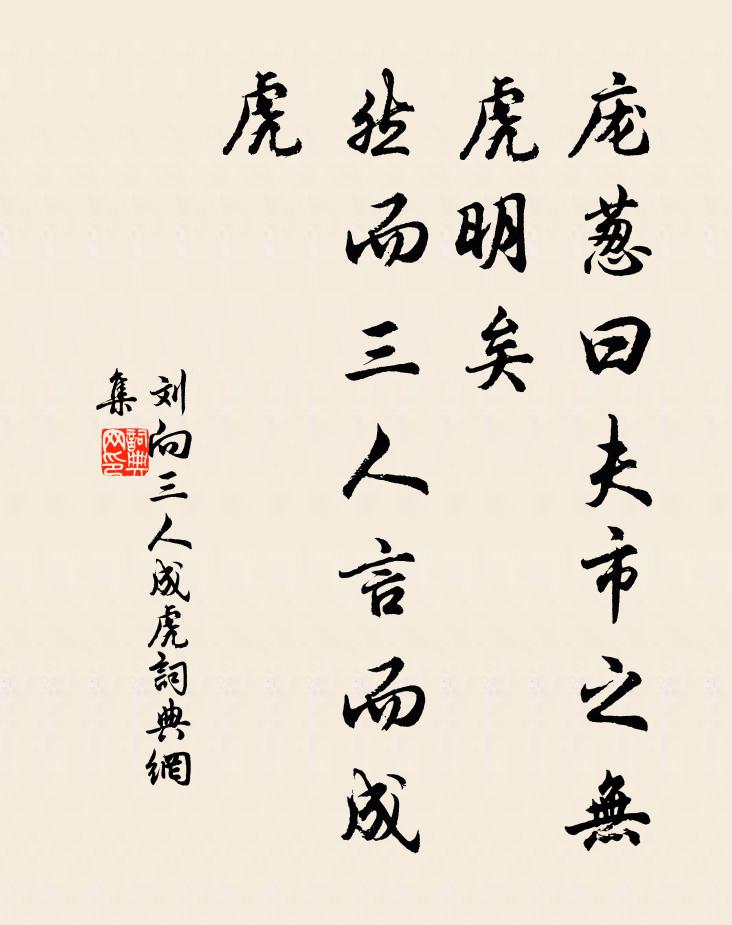 庞葱曰夫市之無
虎明矣
然而三人言而成
虎
刘向三人成虎詞典網
集
詞典
网印